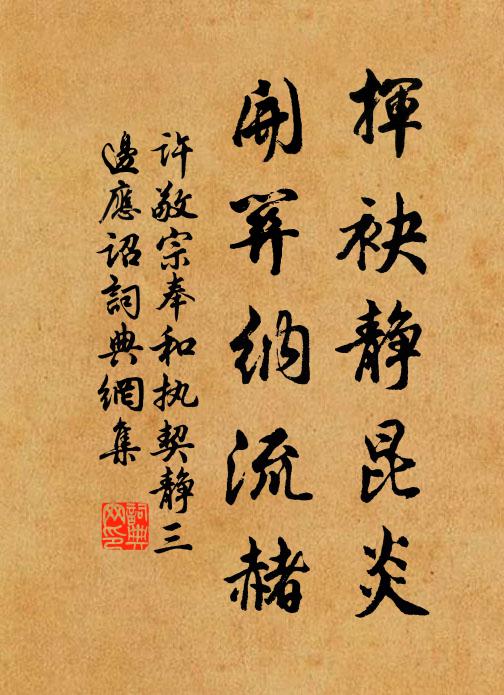 揮袂静昆炎
開關納流赭
许敬宗奉和执契静三
邊應詔詞典網集
詞典网印